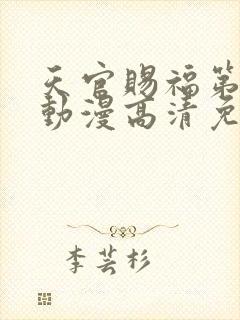 天官賜福第
動漫高清免
李芸杉